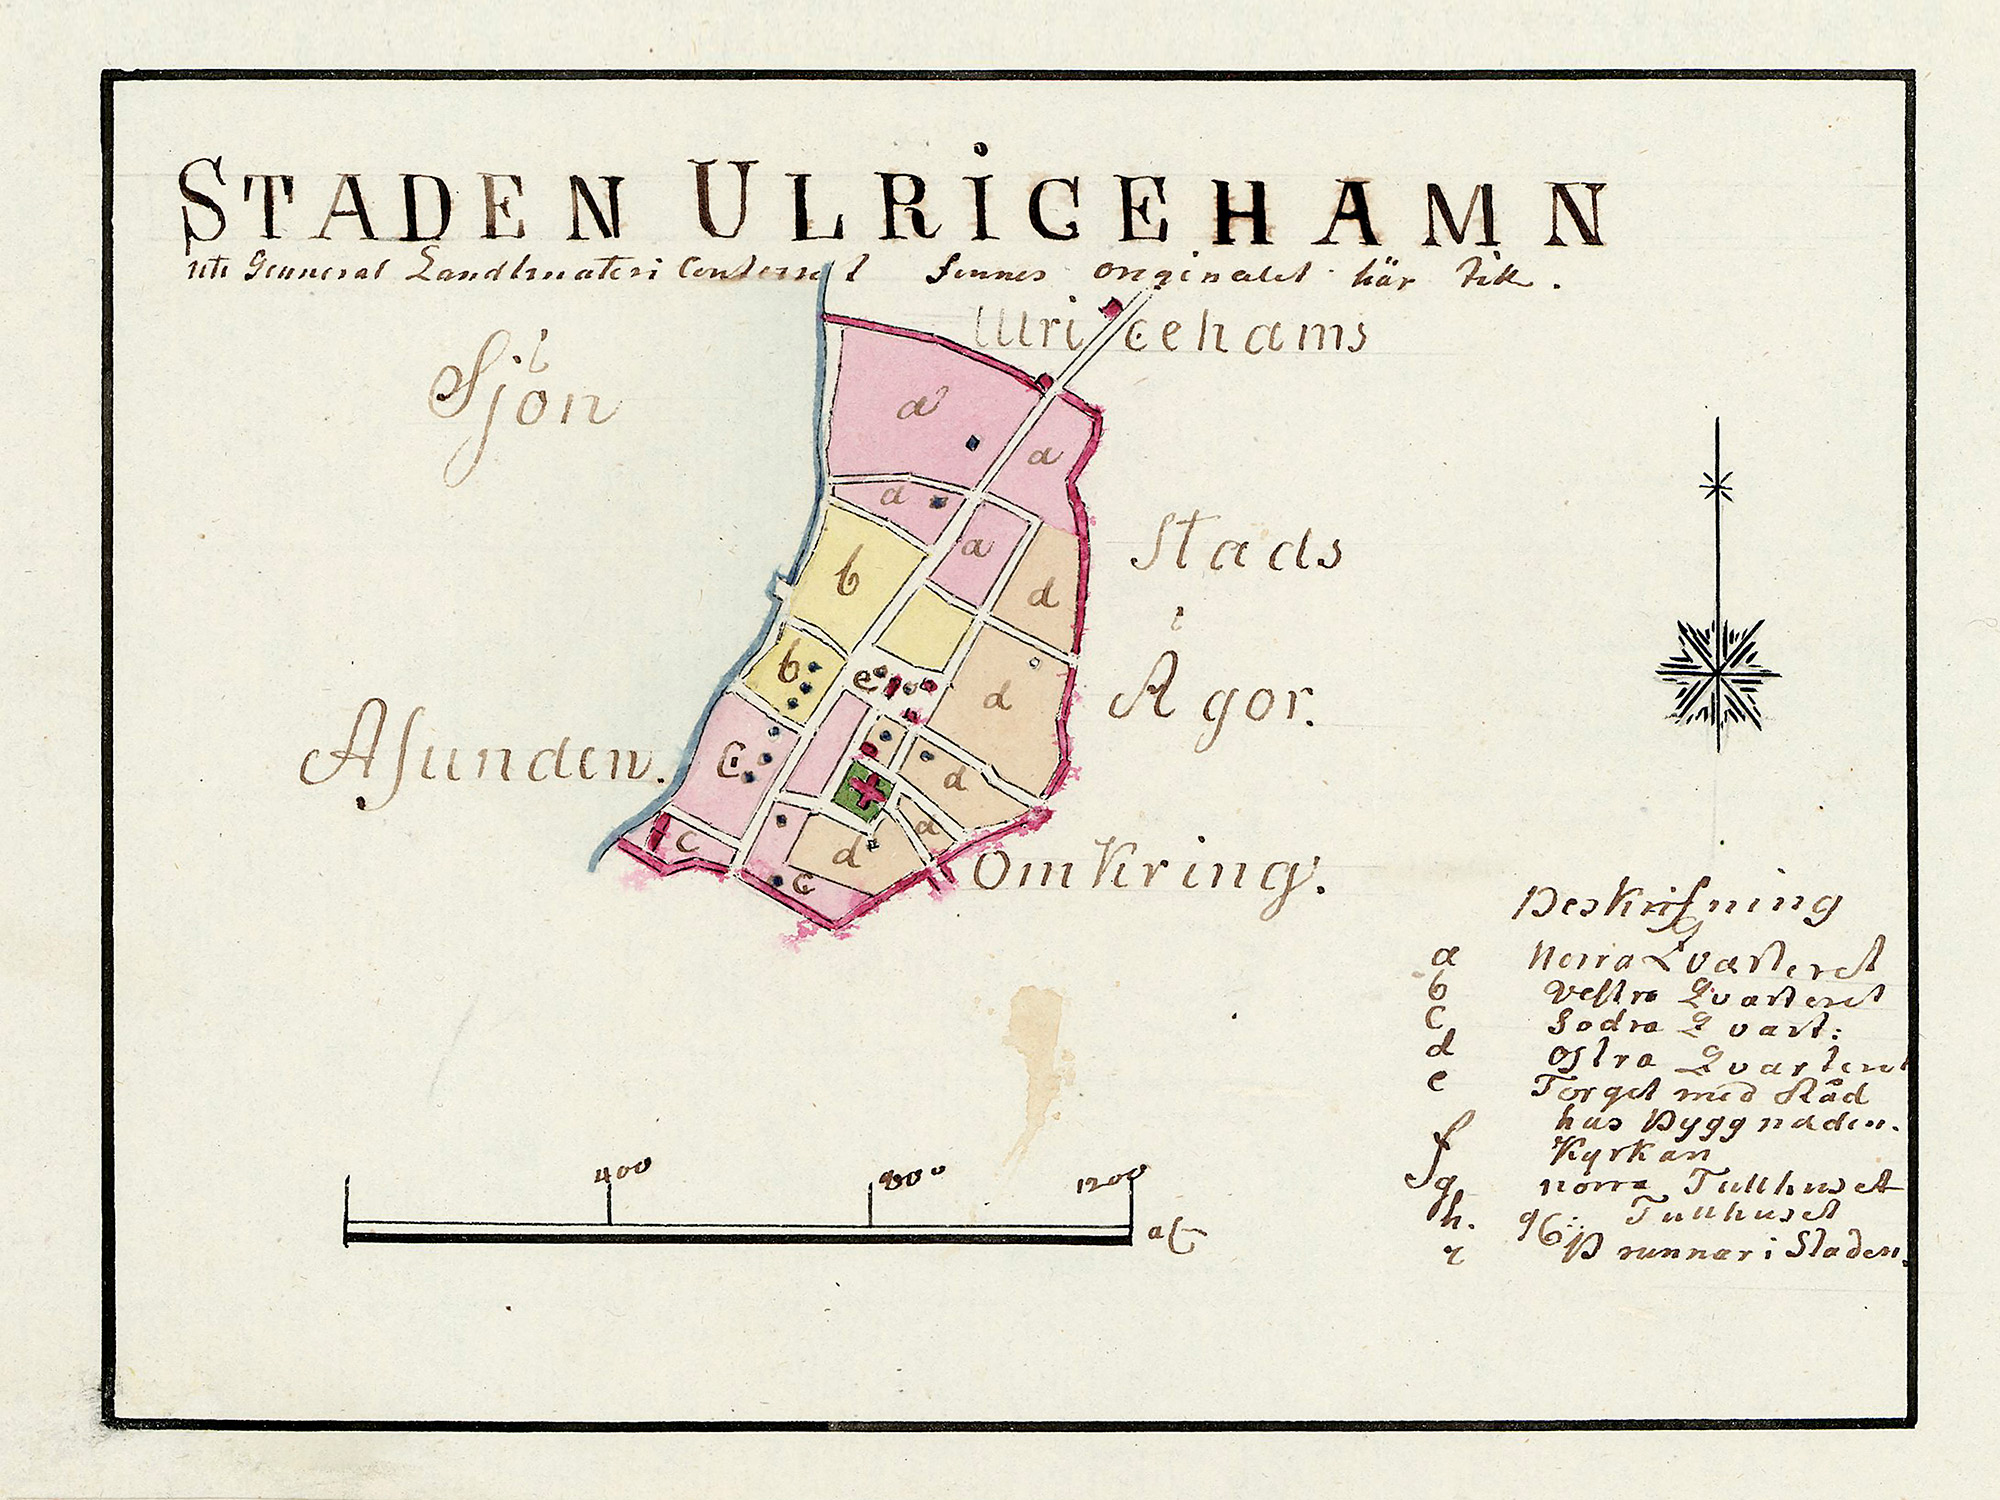 STADEN ULRICEHAMN
uti General Landtmäteri Contoiret finnes originalet här till.
Ulricehams
Sjön
Stads
Ägor.
Asunden.
Omkring.
a
a
a
a
d
b
d
b
e
d
C
d
a
c
d
c
Beskrifning
a Norra Qvarteret
b Vestra Qvarteret
C Södra Qvart:
d Ostra Qvarteret
e Torget med Råd
hus Byggnaden.
f Kyrkan
g norra Tullhuset
h. Tullhuset
i Brunnar i Staden.
400 800 1200